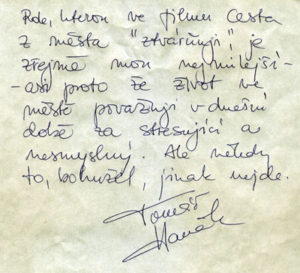 Role, kterou ve filmu Cesta
z města "ztvárňuji", je
zřejmě mou nejmilejší -
- asi proto že život ve
městě považuji v dnešní
době za stresující a
nesmyslný. Ale někdy
to, bohužel, jinak nejde.
Tomáš
Hanák